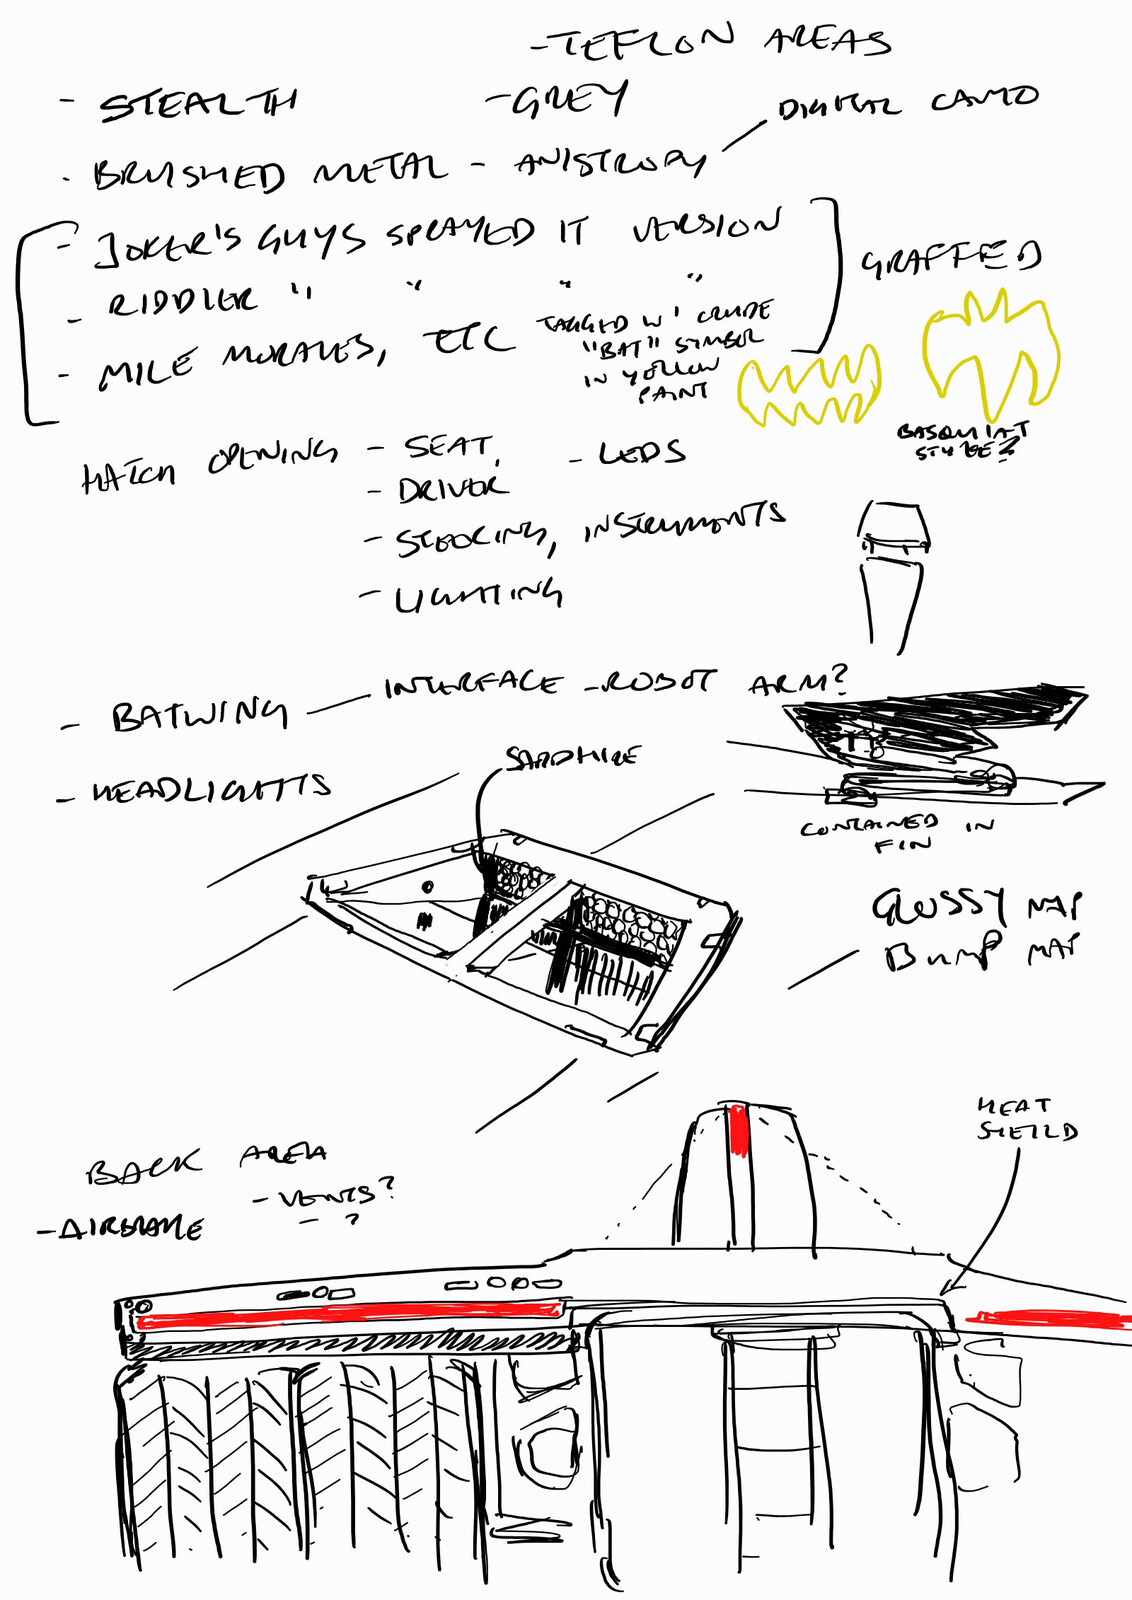 - TEFLON AREAS
- STEALTH - GREY
DIGITAL CAMO
- BRUSHED METAL - ANISTROPY
- JOKER'S GUYS SPRAYED IT VERSION
GRAFFED
- RIDDLER " " " "
- MILE MORALES, ETC TAGGED W' CRUDE
"BAT" SYMBOL
IN YELLOW
PAINT
BASQUIAT
STYLE?
HATCH OPENING - SEAT, - LEDS
- DRIVER
- STEERING, INSTRUMENTS
- LIGHTING
- BATWING — INTERFACE - ROBOT ARM?
- HEADLIGHTS
SAPPHIRE
CONTAINED IN
FIN
GLOSSY MAP
BUMP MAP
HEAT
SHEILD
BACK AREA
- VENTS?
- AIRBRAKE - ?